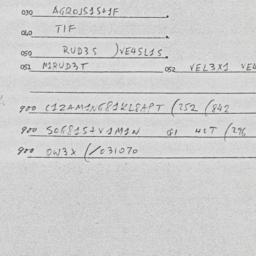 030 AGROJS1S+1F.
040 TIF
050 RUD3S )VE4SL1S.
052 M1RUD3T 052 VEL3X1 VE4
900 C12AM1N681KL8APT (252 (842
900 SO681S+V1M1N G1 HCT (296
900 OW3X (/031070